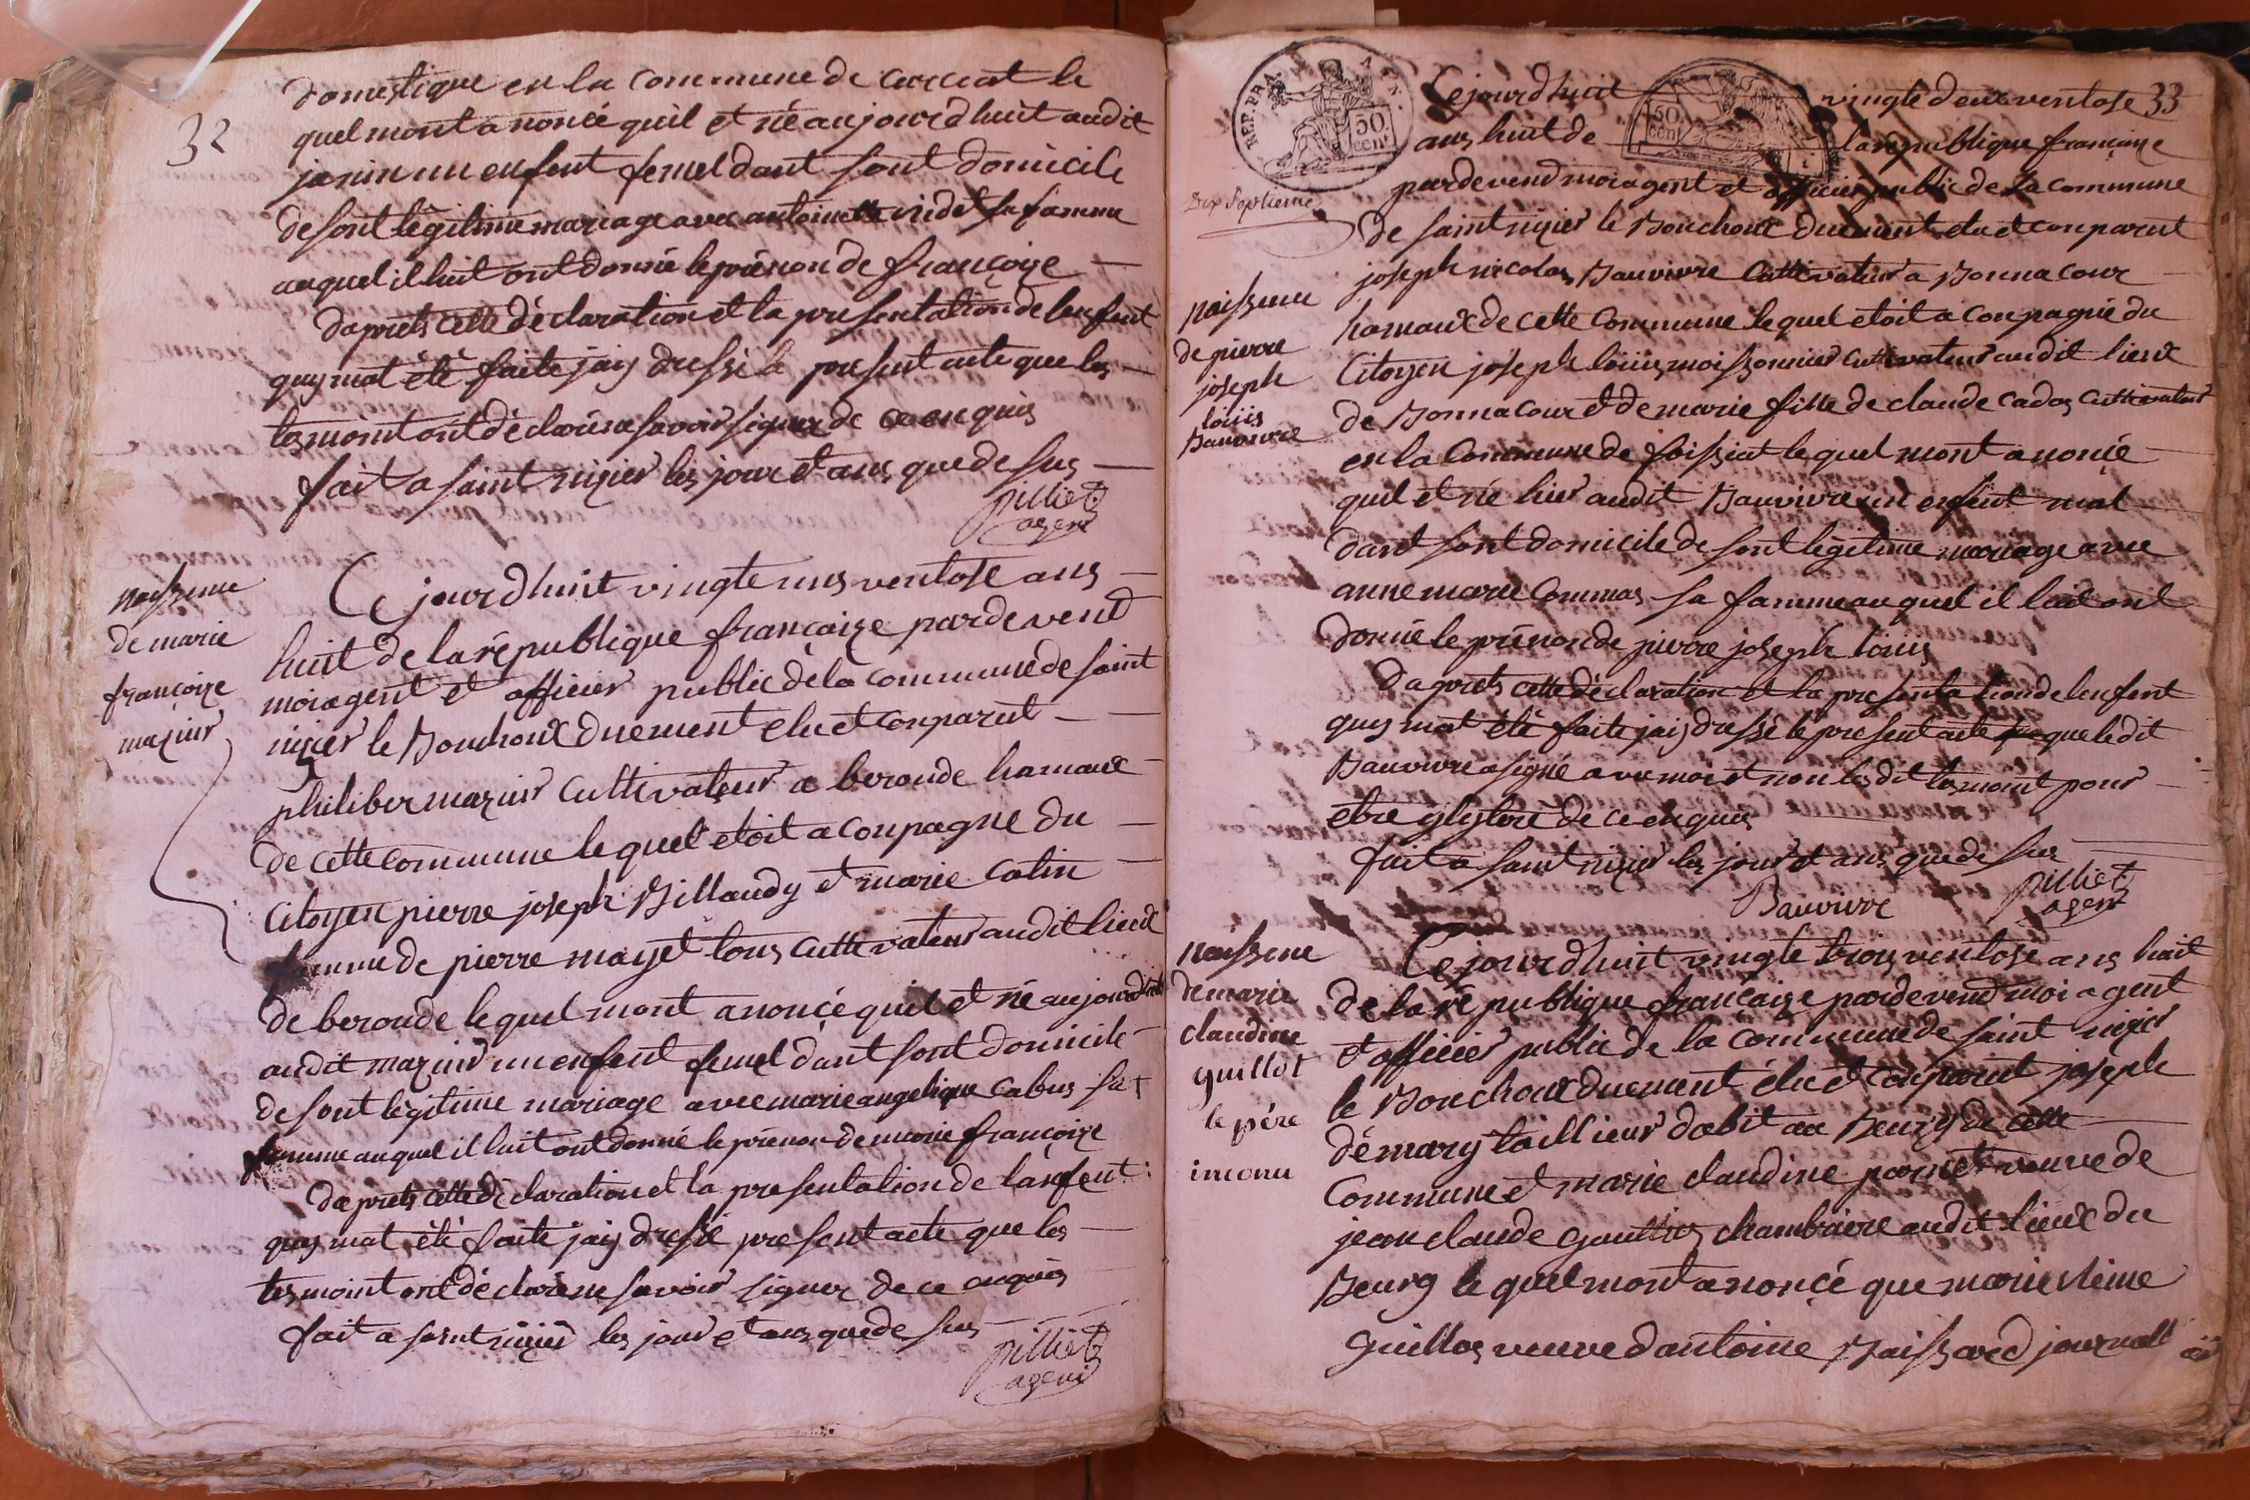 32
domestique en la commune de curciat le
quel mont anoncé quil et né aujourdhuit audit
janin un enfent femel dant sont domicile
de sont légitime mariage avec antoinette videt sa famme
auquel il luit ont donné le prénon de françoize
daprets cette déclaration et la presentation de lenfent
quy mat été faite jaij dressé le present acte que les
tesmoint ont déclaré ne savoir signer de ce enquis
fait a saint nizier les jour et ans que de sus
pilliet
agent
naissence
de marie
françoize
mazuir
Ce jourdhuit vingte uns ventose ans
huit de la république françaize pardevend
moi agent et officier public de la commune de saint
nizier le Bouchoux duement elu et conparut
philiber mazuir cultivateur a beroude hamaux
de cette commune lequel etoit a conpagne du
Citoyen pierre joseph Billaudy et marie catin
famme de pierre mayet tous cultivateur audit lieux
de beroude lequel mont anoncé quil et né aujourdhuit
audit mazuir un enfent femel dant sont domicile
de sont légitime mariage avec marie angelique cabus sa
famme auquel il luit ont donné le prénon de marie françoize
daprets cette déclaration et la presentation de lanfent
quy mat été faite jaij dressé présent acte que les
tesmoint ont déclaré ne savoir signer de ce enquis
fait a saint nizier les jour et ans que de sus
pilliet
agent
REP. FRA.
50
cent
50
cent
33
Dix Septieme
Ce jourdhuit vingte deux ventose
ans huit de la republique françaize
pardevend moi agent et officier public de la commune
de saint nizier le Bouchoux duement elu et conparut
joseph nicolas Bauvivre Cultivateur a Bonnacour
hamaux de cette commune lequel etoit a conpagné du
Citoyen joseph louiis moissonnier cultivateur audit lieux
de Bonnacour et de marie fille de claude cadoz cultivateur
en la Commune de foissiat lequel mont anoncé
quil et né hier audit Bauvivre un enfent mal
dant sont domicile de sont légitime mariage avec
anne marie Commas sa famme auquel il luit ont
donné le prénon de pierre joseph louiis
naissence
de pierre
joseph
louiis
Bauvivre
daprets cette déclaration et la presentation de lenfent
quy mat été faite jaij dressé le present acte que le dit
Bauvivre a signé avec moi et non les dit tesmoint pour
etre ylyteré de ce enquis
fait a saint nizier les jour et ans que de sus
Bauvivre
pilliet
agent
naissence
de marie
claudine
guillot
le pére
inconu
Ce jourdhuit vingte trois ventose ans huit
de la république françaize pardevend moi agent
et officier public de la commune de saint nizier
le Bouchoux duement élu et conparut joseph
démary taillieur dabit au Bourg de cette
Commune et marie claudine pornet veuve de
jean claude gauttier chambriere audit lieux du
Bourg lequel mont anoncé que marie
guillot veuve dantoine Baissard journalliere